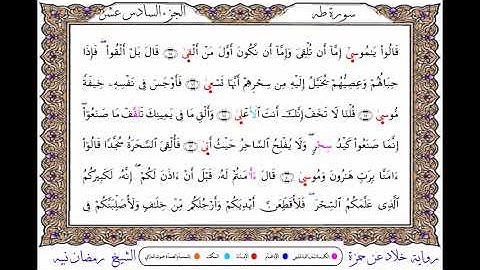 سورة طه
الجزء السادس عشر
قَالُوا۟ يَـٰمُوسَىٰٓ إِمَّآ أَن تُلْقِىَ وَإِمَّآ أَن نَّكُونَ أَوَّلَ مَنْ أَلْقَىٰ ۝ قَالَ بَلْ أَلْقُوا۟ ۖ فَإِذَا
حِبَالُهُمْ وَعِصِيُّهُمْ يُخَيَّلُ إِلَيْهِ مِن سِحْرِهِمْ أَنَّهَا تَسْعَىٰ ۝ فَأَوْجَسَ فِى نَفْسِهِۦ خِيفَةً
مُّوسَىٰ ۝ قُلْنَا لَا تَخَفْ إِنَّكَ أَنتَ ٱلْأَعْلَىٰ ۝ وَأَلْقِ مَا فِى يَمِينِكَ تَلَقَّفْ مَا صَنَعُوٓا۟ ۖ
إِنَّمَا صَنَعُوا۟ كَيْدُ سِحْرٍ ۖ وَلَا يُفْلِحُ ٱلسَّاحِرُ حَيْثُ أَتَىٰ ۝ فَأُلْقِىَ ٱلسَّحَرَةُ سُجَّدًا قَالُوٓا۟
ءَامَنَّا بِرَبِّ هَـٰرُونَ وَمُوسَىٰ ۝ قَالَ ءَأَ۬مَنتُمْ لَهُۥ قَبْلَ أَنْ ءَاذَنَ لَكُمْ ۖ إِنَّهُۥ لَكَبِيرُكُمُ
ٱلَّذِى عَلَّمَكُمُ ٱلسِّحْرَ ۖ فَلَأُقَطِّعَنَّ أَيْدِيَكُمْ وَأَرْجُلَكُم مِّنْ خِلَـٰفٍ وَلَأُصَلِّبَنَّكُمْ فِى
رواية خلاد عن حمزة
الشيخ رمضان نبيه